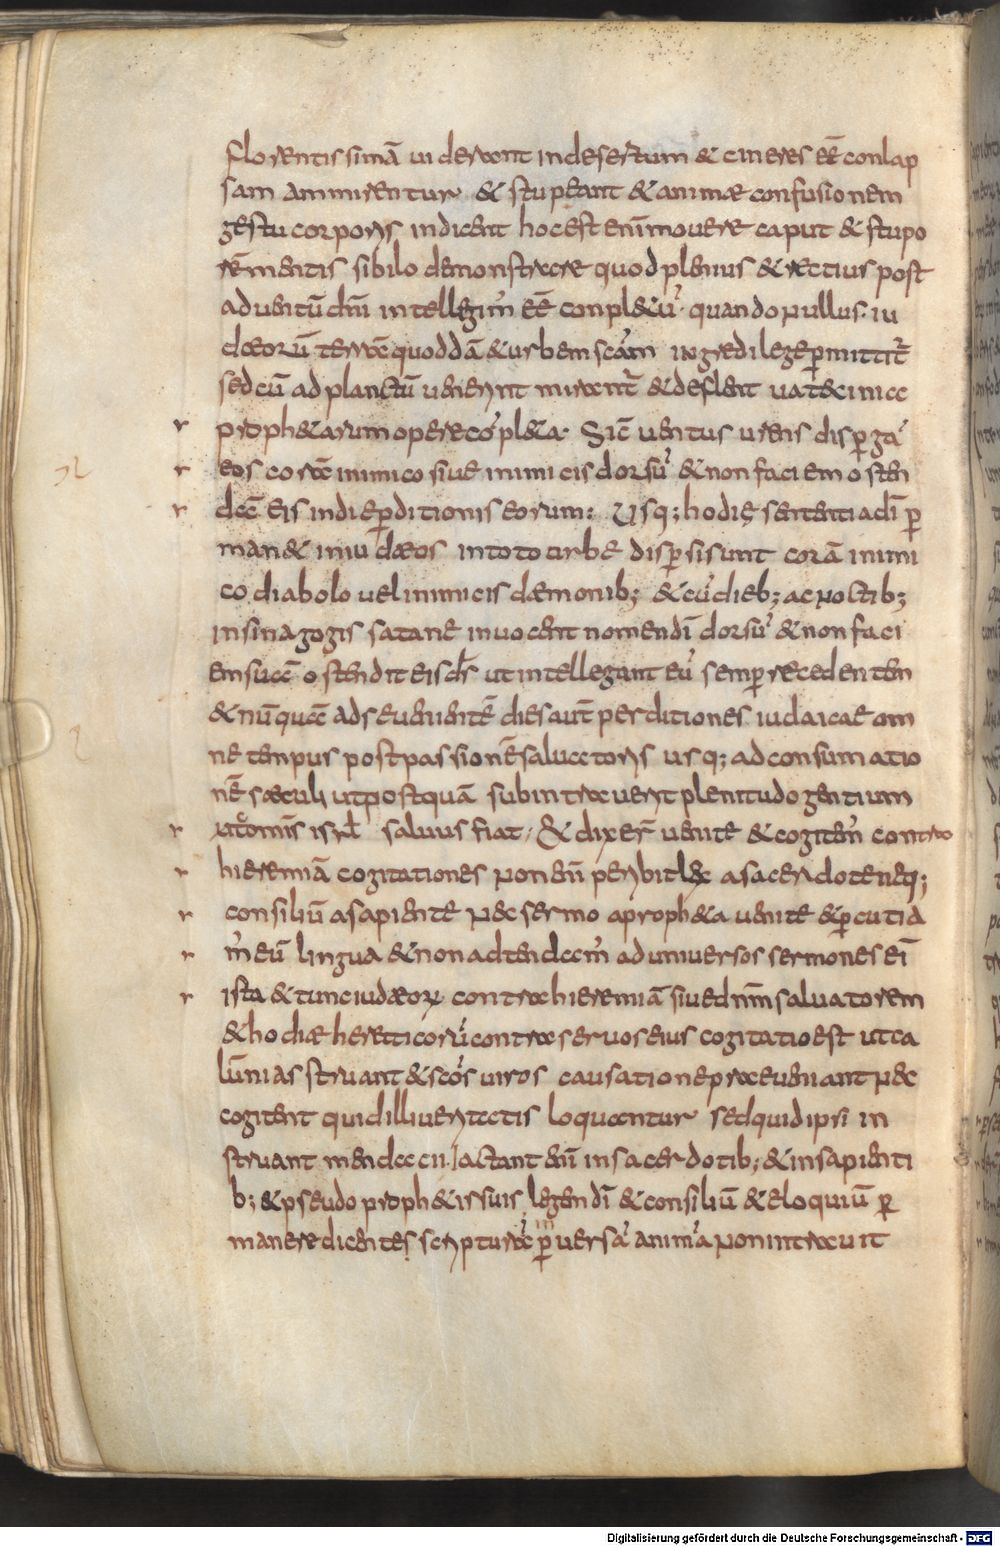 florentissimā uiderant indesertum & cineres eē conlap
sam ammirentur & stupeant & animæ confusionem
gestu corporis indicent hocest enīmouere caput & stupo
rē mentis sibilo demonstrare quod plenius & rectius post
aduentū dn̄i intellegim' eē conpl&ū· quando nullus iu
dæorū terrā quoddā & urbem scām ingredi lege p̄mittit̄
sed cū ad planctū uenerint mirant̄ & deflent uatecinia
r proph&arum opere cōpl&a· Sic uentus urens disp̄gā
r eos coram inimico siue inimicis dorsū & non faciem osten
r dā eis indie p̄ditionis eorum: Usq; hodie sententia dī p̄
man& iniudæos intoto urbe disp̄si sunt corā inimi
co diabolo uel inimicis dæmonib; & cū dieb; ac noctib;
insinagogis satane inuocent nomen dī dorsū & non faci
em suā ostendit eis ds̄ ut intellegant eū semp̄ recedenten
& nū quā adse uenientē dies aut̄ perditiones iudaicae om
ne tempus post passionē saluatoris usq; ad consumatio
nē sæculi ut postquā subintrauerit plenitudo gentium
r tc̄ omīs isrł saluus fiat· & dixer̄ uenite & cogitem' contra
r hieremiā cogitationes non enī peribit lex a sacerdote neq;
r consiliū a sapiente nec sermo a proph&a uenite & p̄cutia
r m' eū lingua & non adtendam' ad uniuersos sermones eī
r ista & tunc iudæorum contra hieremiā siue dn̄m saluatorem
& hodiæ hereticorū contra seruos eius cogitatio est ut ca
lūnias struant & scōs uiros causatione praeueniant nec
cogitent quid illi ueri tatis loquantur sed quid ipsi in
struant mendacii Iactant enī insacerdotib; & insapienti
b; & pseudo proph&is suis legen dī & consiliū & eloquiū p̄
manere dicentes scripturā p̄uersā animā non intrauit
Digitalisierung gefördert durch die Deutsche Forschungsgemeinschaft - DFG